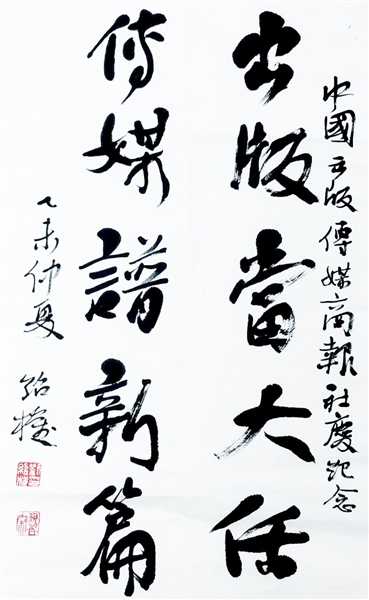 中國出版傳媒商報社慶紀念
出版當大任
傳媒譜新篇
乙未仲夏